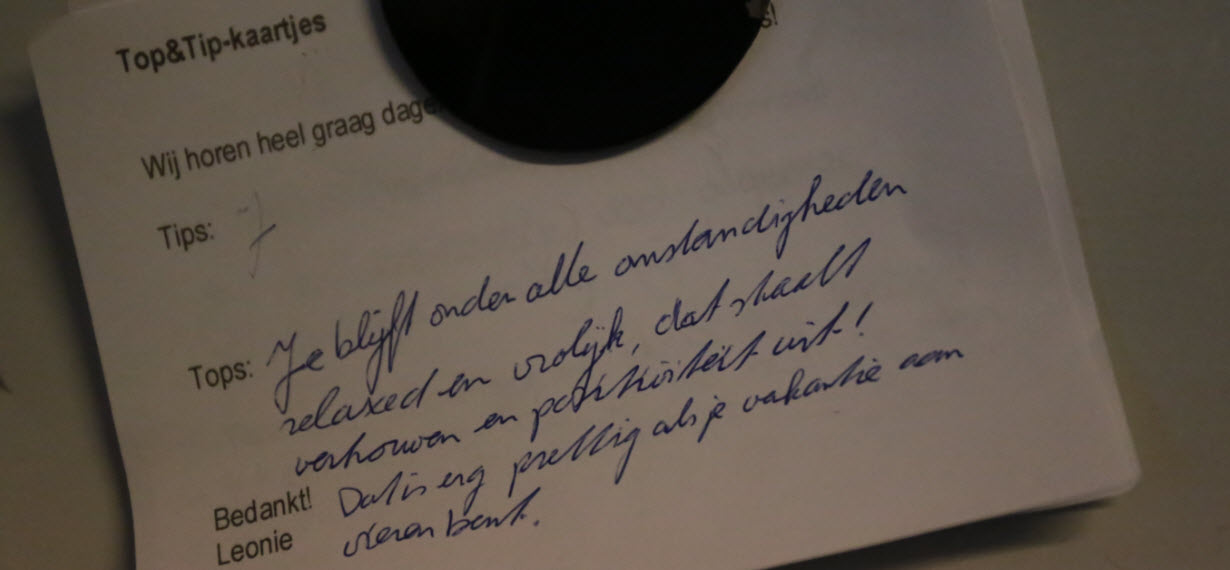 Top&Tip-kaartjes
s!
Wij horen heel graag
Tips: -/-
Tops: Je blijft onder alle omstandigheden
relaxed en vrolijk, dat straalt
vertrouwen en positiviteit uit!
Dat is erg prettig als je vakantie aan
vieren bent.
Bedankt!
Leonie